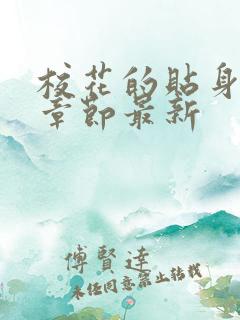 校花的貼身
章節最新
傅賢達
未经同意禁止转载